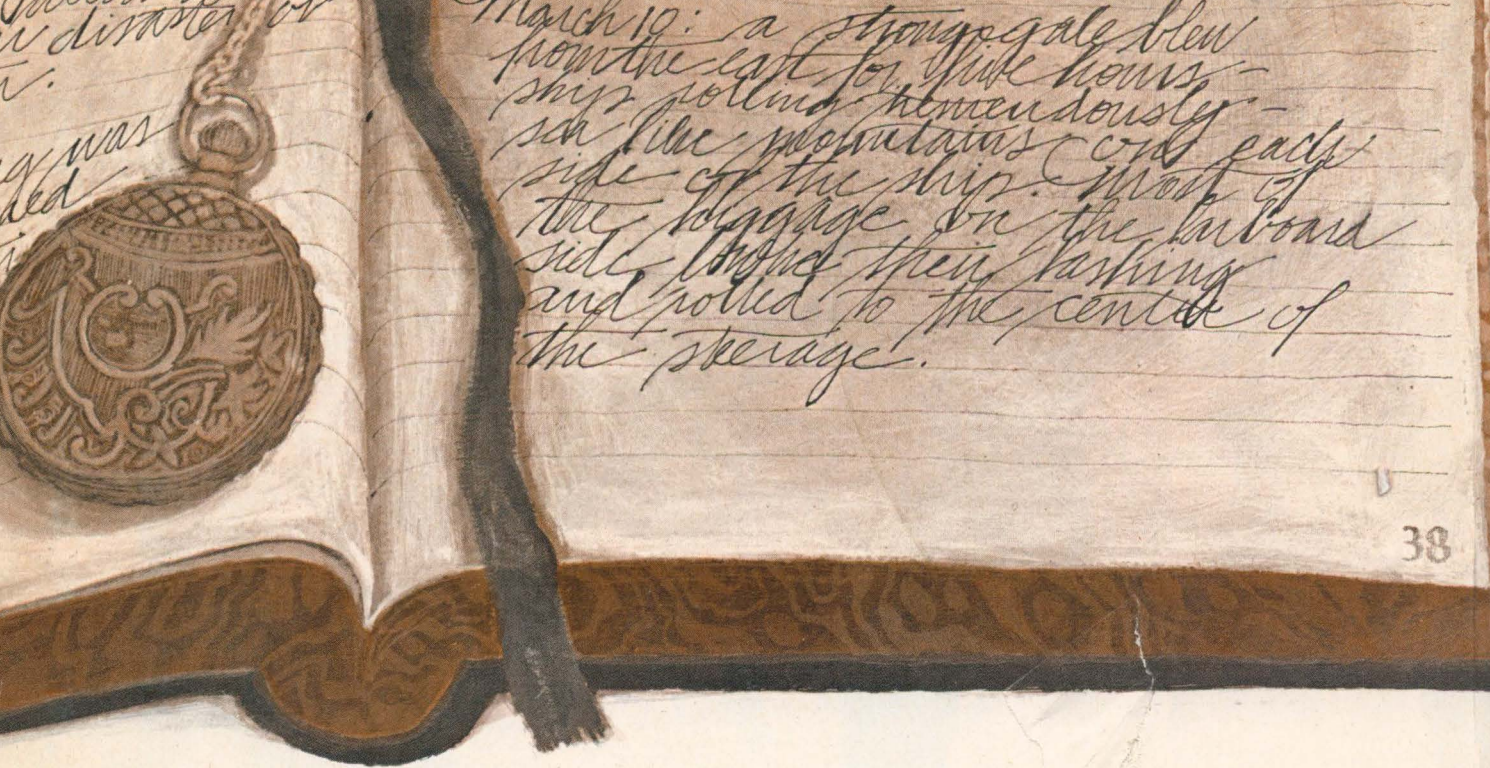 disaster or
was
March 10: a strong gale blew
from the east for five hours –
ship rolling tremendously –
sea like mountains on each
side of the ship. Most of
the luggage on the larboard
side broke their lashing
and rolled to the center of
the steerage.
38